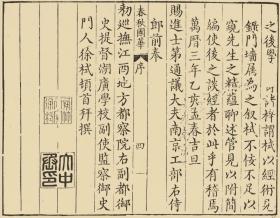 之後學
叨許謂栻以經術充
錄門墻屬為之叙栻不佞不足以
窺先生之精蘊聊述管見以附簡
編俾後之談經者於此乎有稽焉
萬曆三年乙亥孟春吉旦
賜進士第通議大夫南京工部右侍
郎前奉
勑巡撫江西地方都察院右副都御
史提督湖廣學校副使監察御史
門人徐栻頓首拜撰
春秋國華
序
四